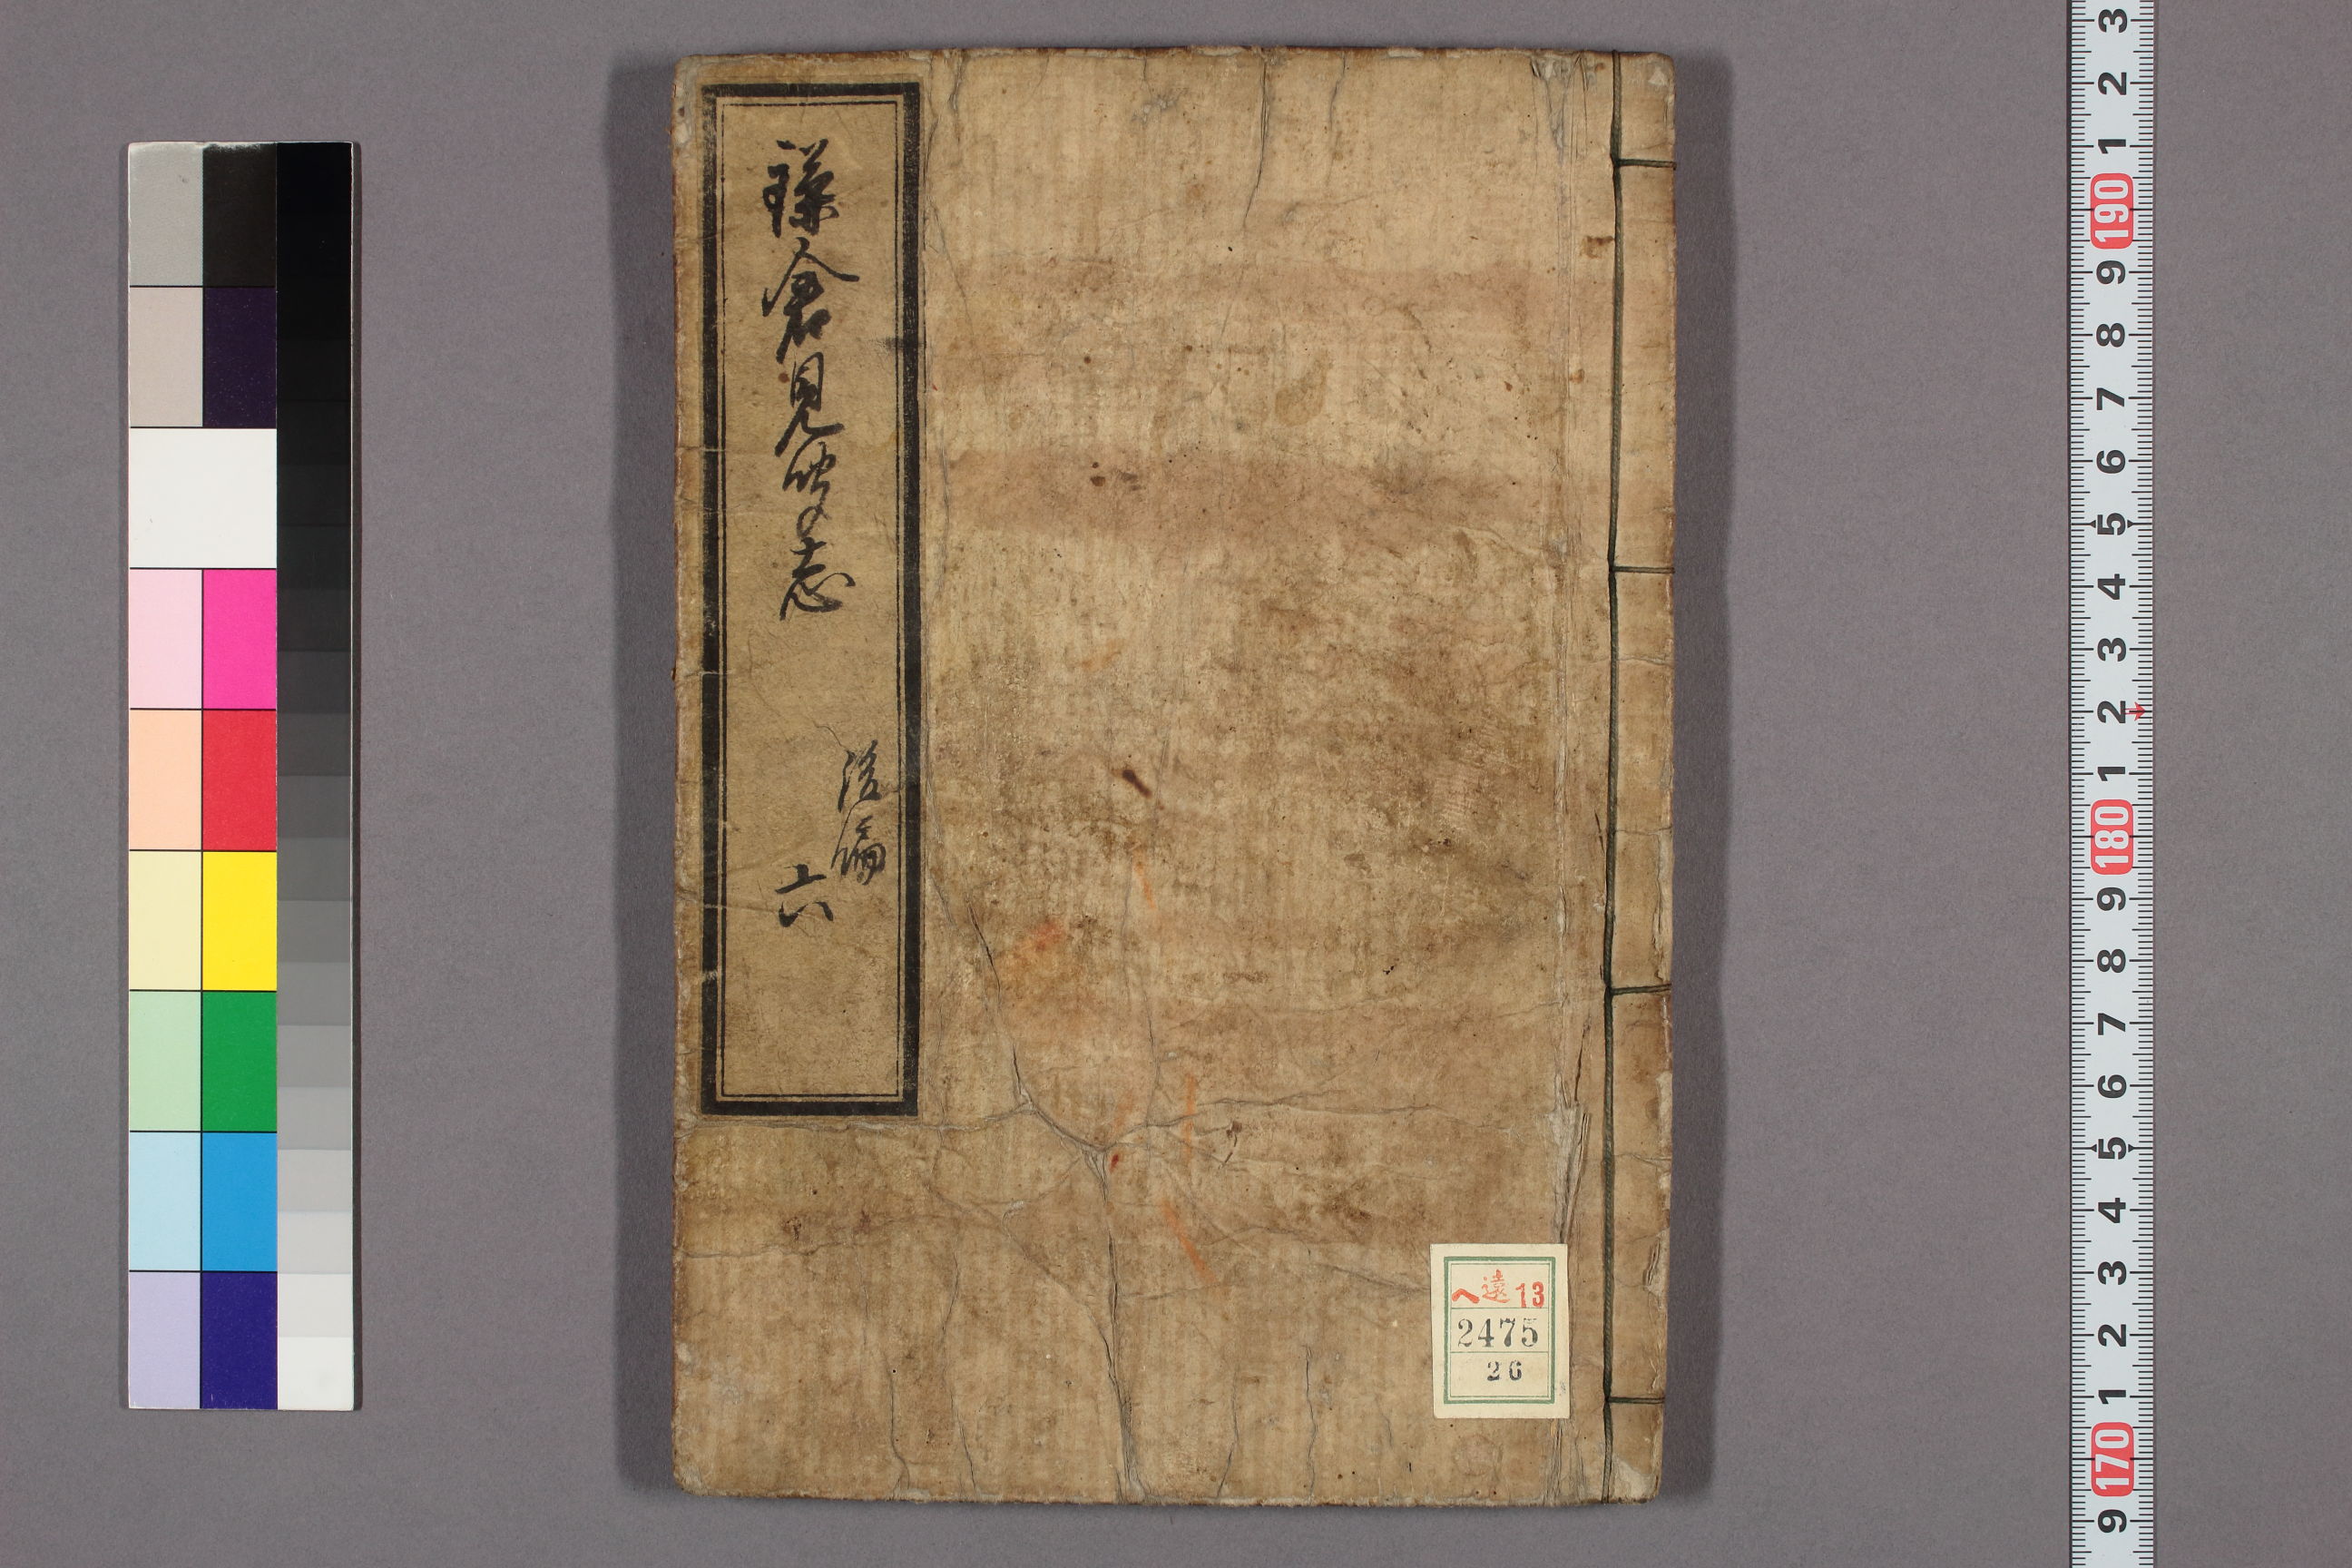 鎌倉見聞志
後編
六
ヘ遠13
2475
26
3
2
1
190
9
8
7
6
5
4
3
2
1
180
9
8
7
6
5
4
3
2
1
170
9